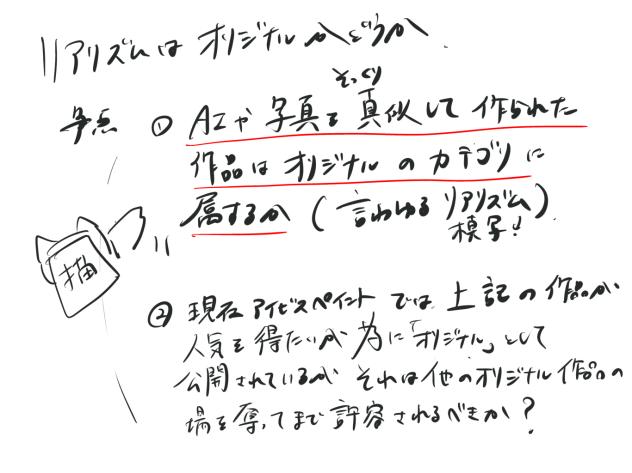 リアリズムは オリジナルかどうか
争点 ① AIや写真をそっくり真似して作られた
作品は オリジナルのカテゴリに
属するか (言わゆるリアリズム)
模写!!
描
② 現在アイビスペイントでは上記の作品が
人気を得たいが為に「オリジナル」として
公開されているが それは他のオリジナル作品の
場を奪ってまで許容されるべきか?